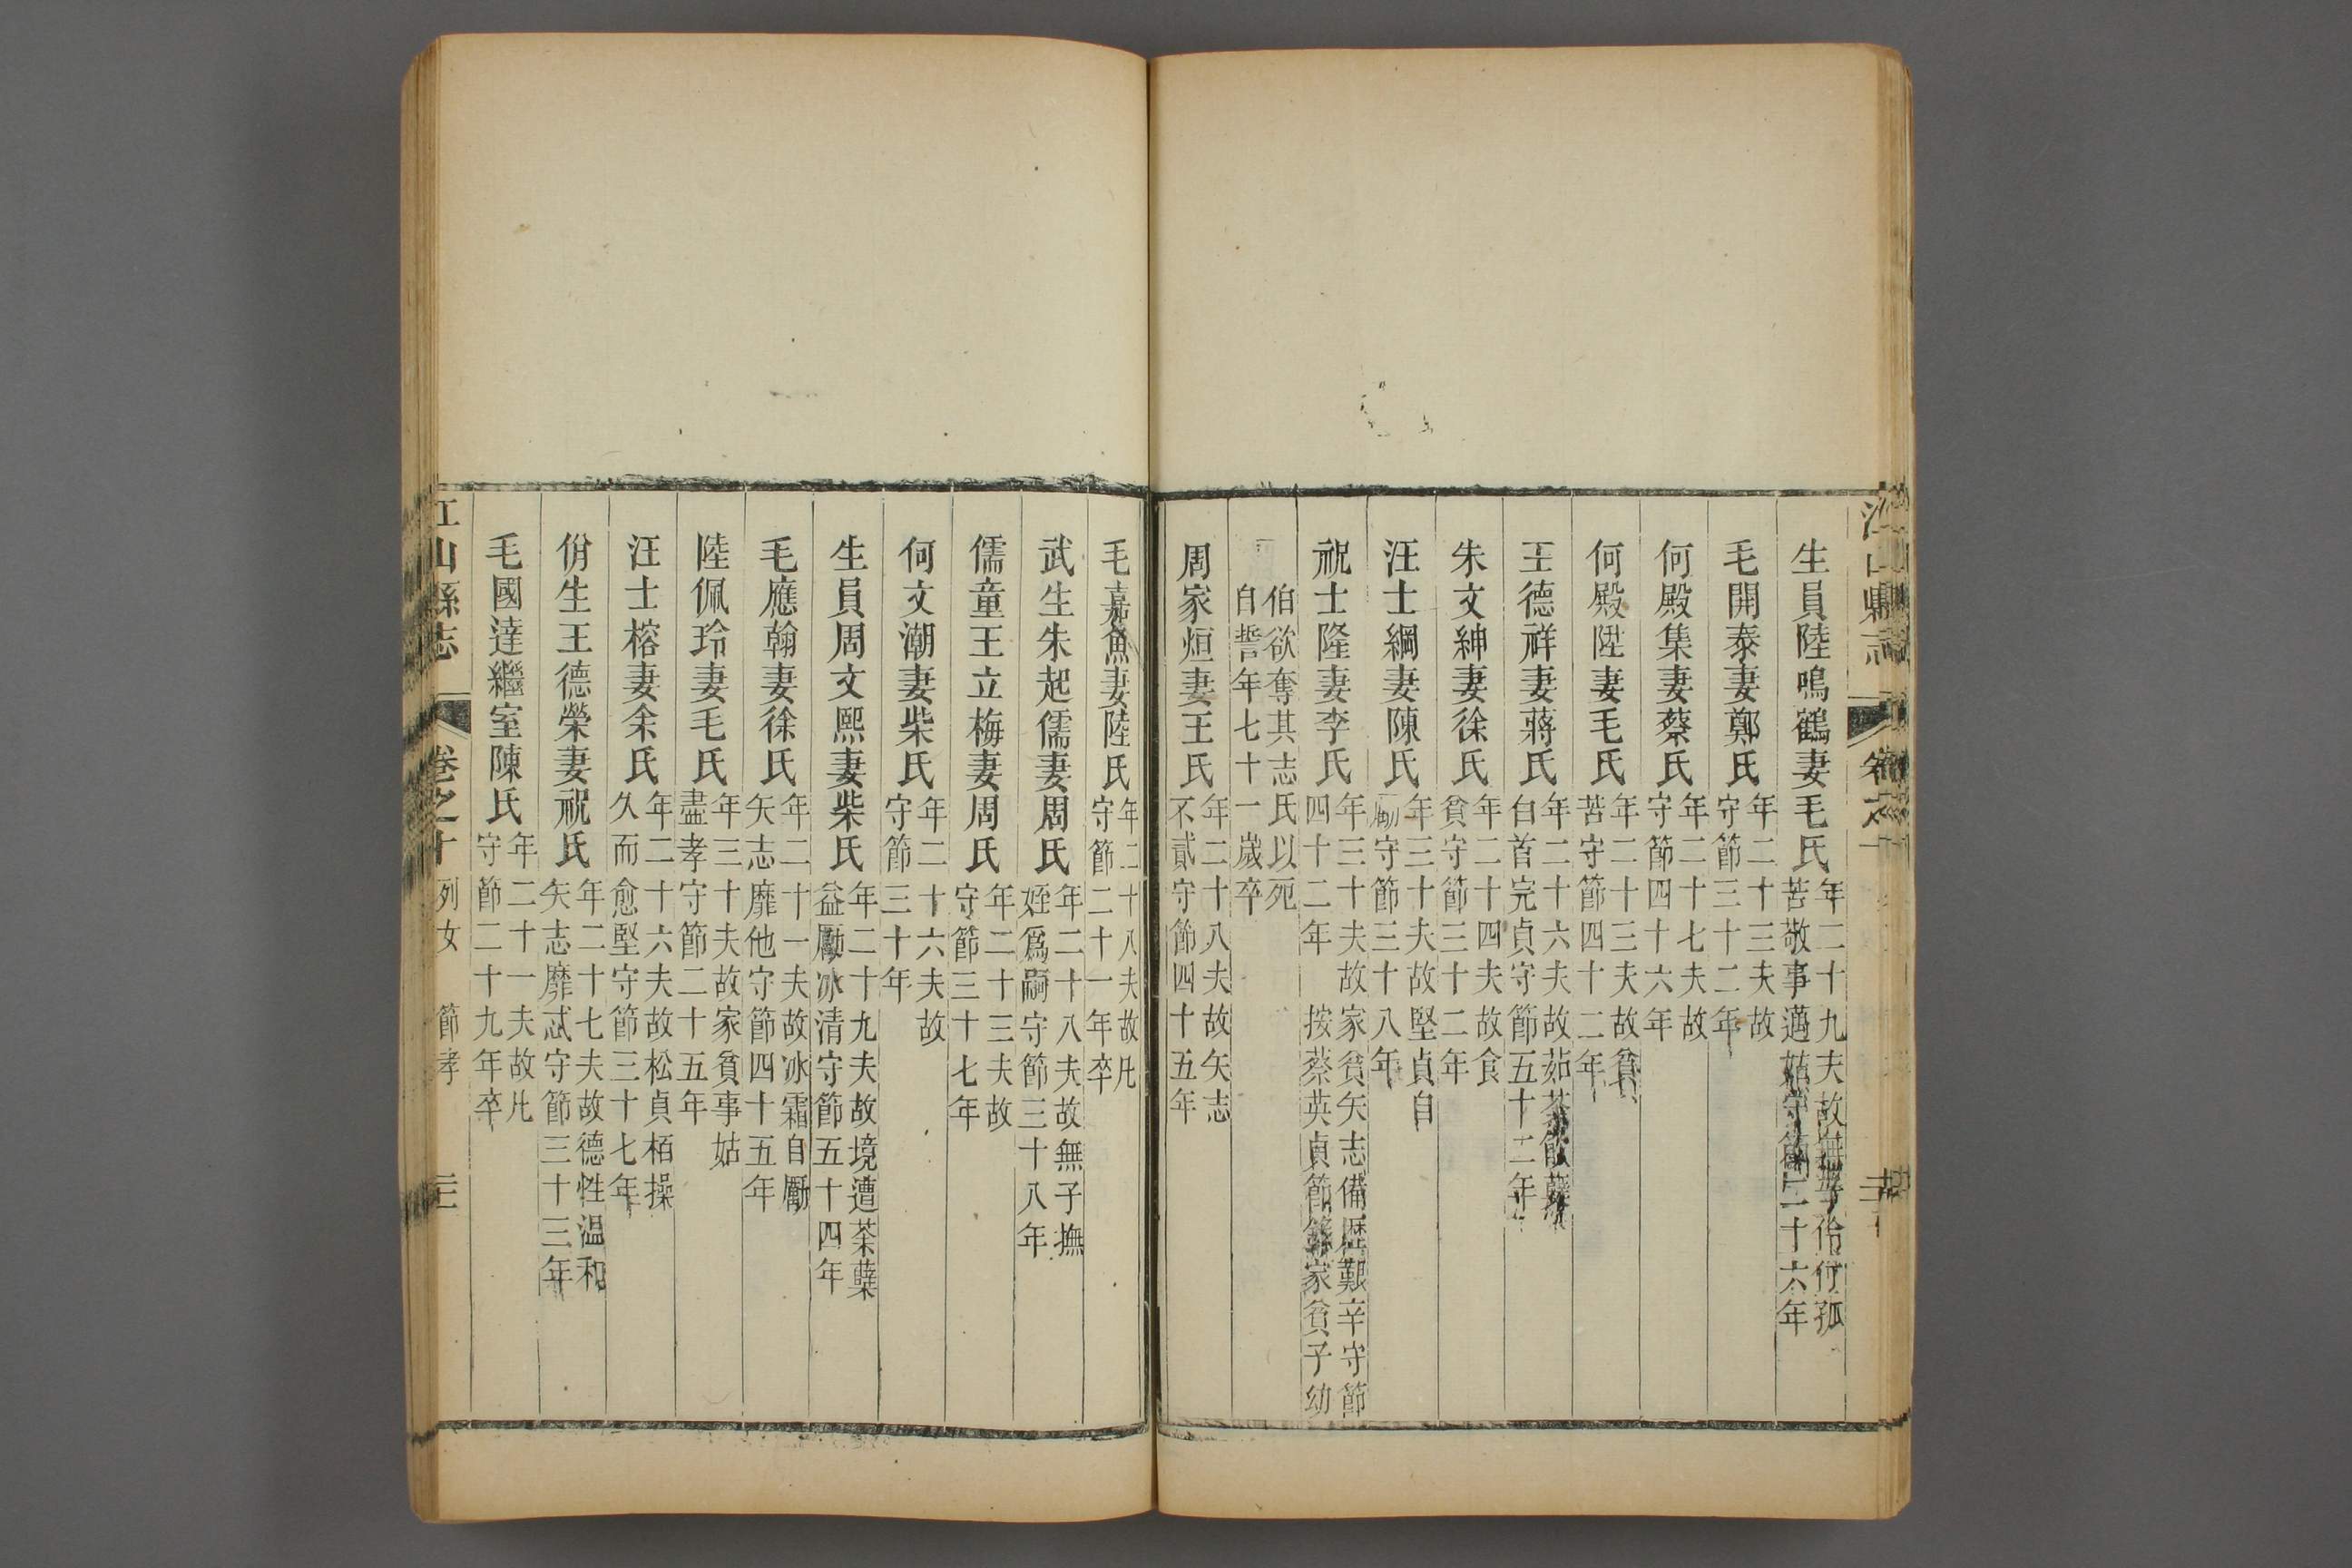 生員陸鳴鶴妻毛氏年二十九夫故撫子伶仃孤
苦敬事邁姑守節二十六年
毛開泰妻鄭氏年二十三夫故
守節三十二年
何殿集妻蔡氏年二十七夫故
守節四十六年
何殿陞妻毛氏年二十三夫故貧
苦守節四十二年
王德祥妻蔣氏年二十六夫故茹荼飲蘖
白首完貞守節五十二年
朱文紳妻徐氏年二十四夫故食
貧守節三十二年
汪士綱妻陳氏年三十夫故堅貞自
勵守節三十八年
祝士隆妻李氏年三十夫故家貧矢志備歷艱辛守節
四十二年 按蔡英貞節錄家貧子幼
伯欲奪其志氏以死
自誓年七十一歲卒
周家烜妻王氏年二十八夫故矢志
不貳守節四十五年
毛嘉魚妻陸氏年二十八夫故凡
守節二十一年卒
武生朱起儒妻周氏年二十八夫故無子撫
姪爲嗣守節三十八年
儒童王立梅妻周氏年二十三夫故
守節三十七年
何文潮妻柴氏年二十六夫故
守節三十年
生員周文熙妻柴氏年二十九夫故境遭荼蘖
益勵冰清守節五十四年
毛應翰妻徐氏年二十一夫故冰霜自勵
矢志靡他守節四十五年
陸佩玲妻毛氏年三十夫故家貧事姑
盡孝守節二十五年
汪士榕妻余氏年二十六夫故松貞栢操
久而愈堅守節三十七年
佾生王德榮妻祝氏年二十七夫故德性温和
矢志靡忒守節三十三年
毛國達繼室陳氏年二十一夫故凡
守節二十九年卒
江山縣志 卷之十 列女 節孝